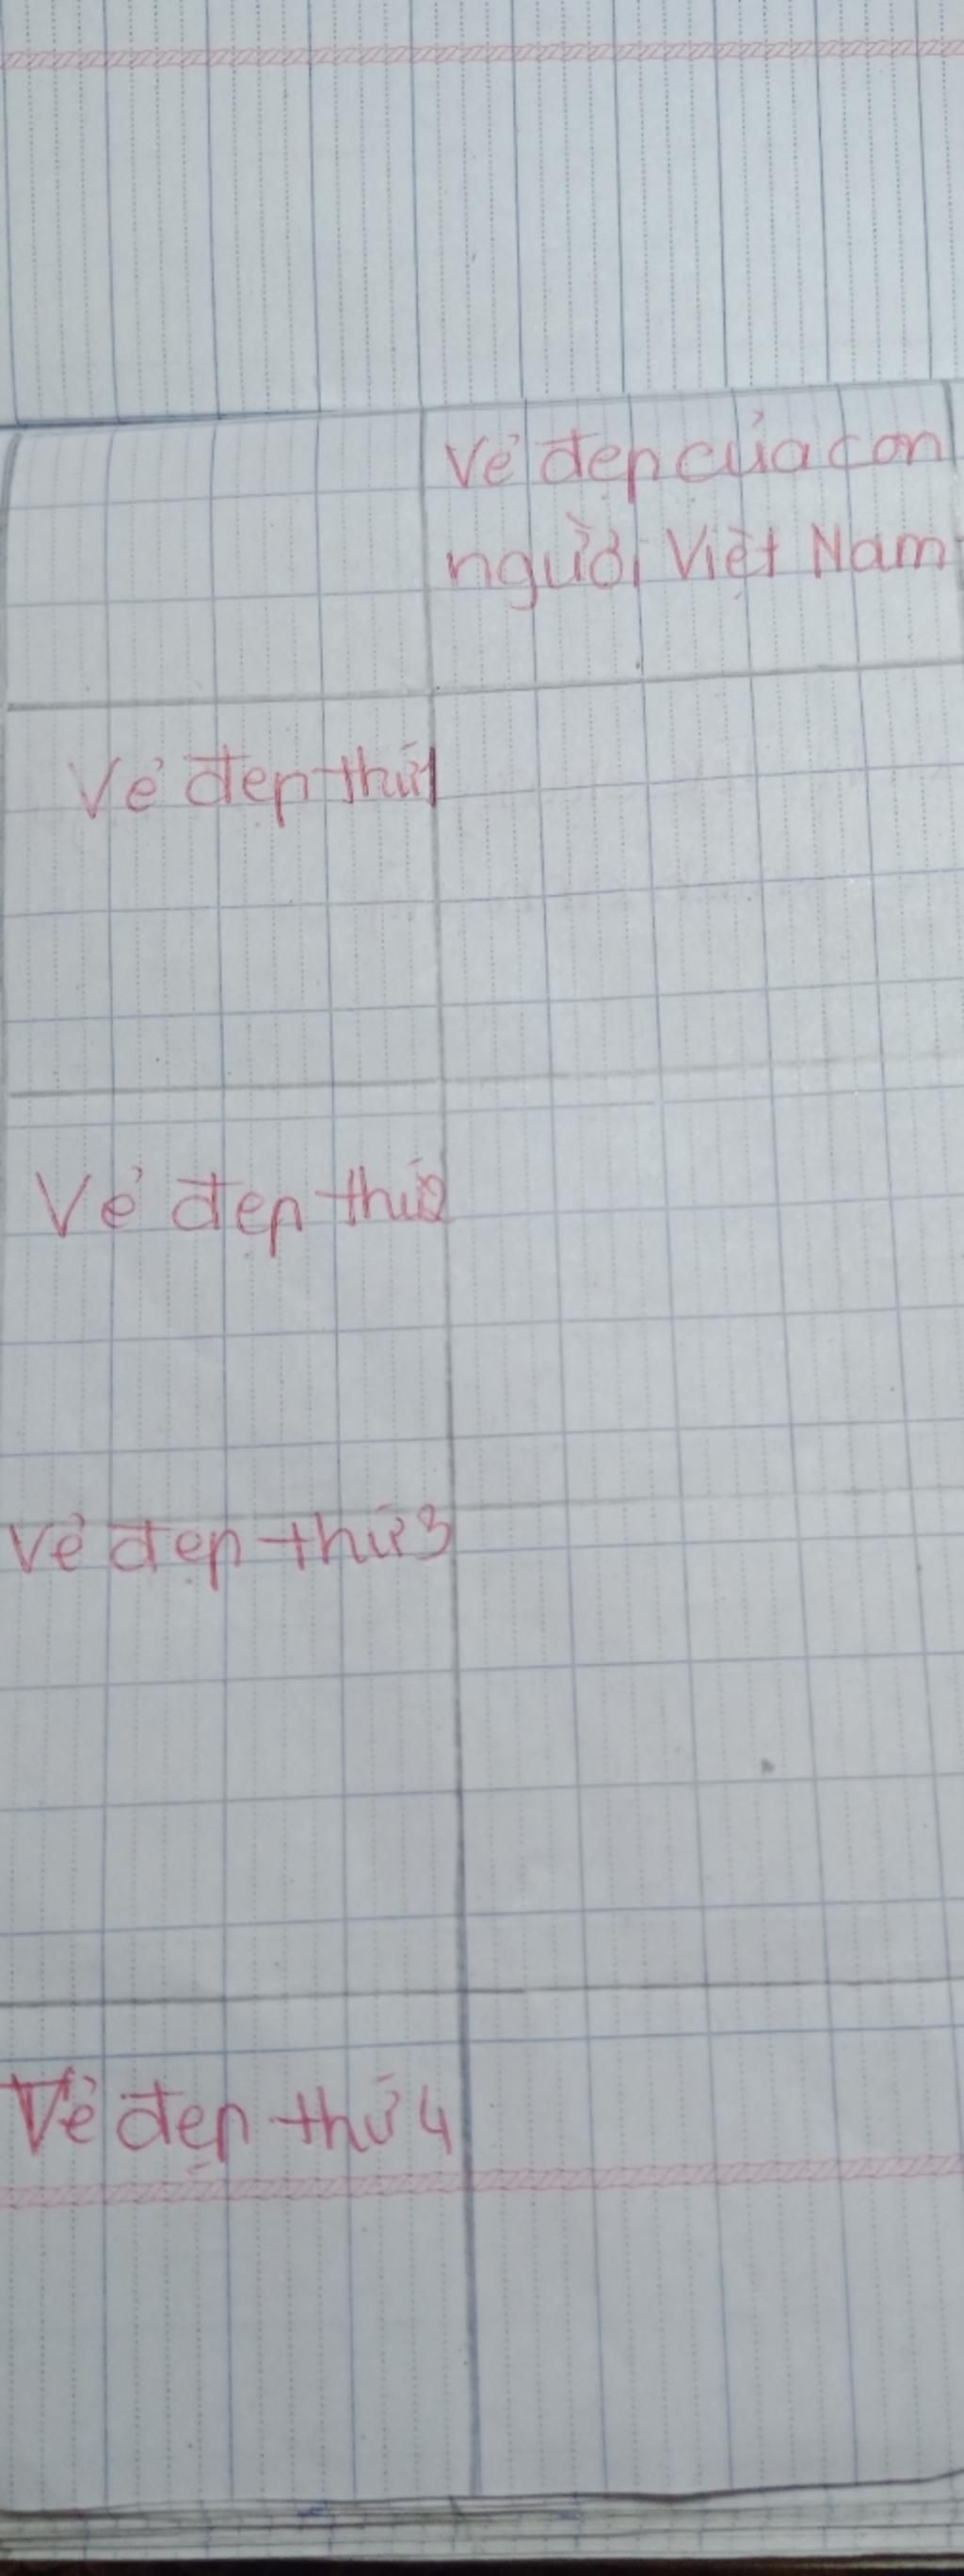 Vẻ đẹp của con
người Việt Nam
Vẻ đẹp thứ 1
Vẻ đẹp thứ 2
Vẻ đẹp thứ 3
Vẻ đẹp thứ 4